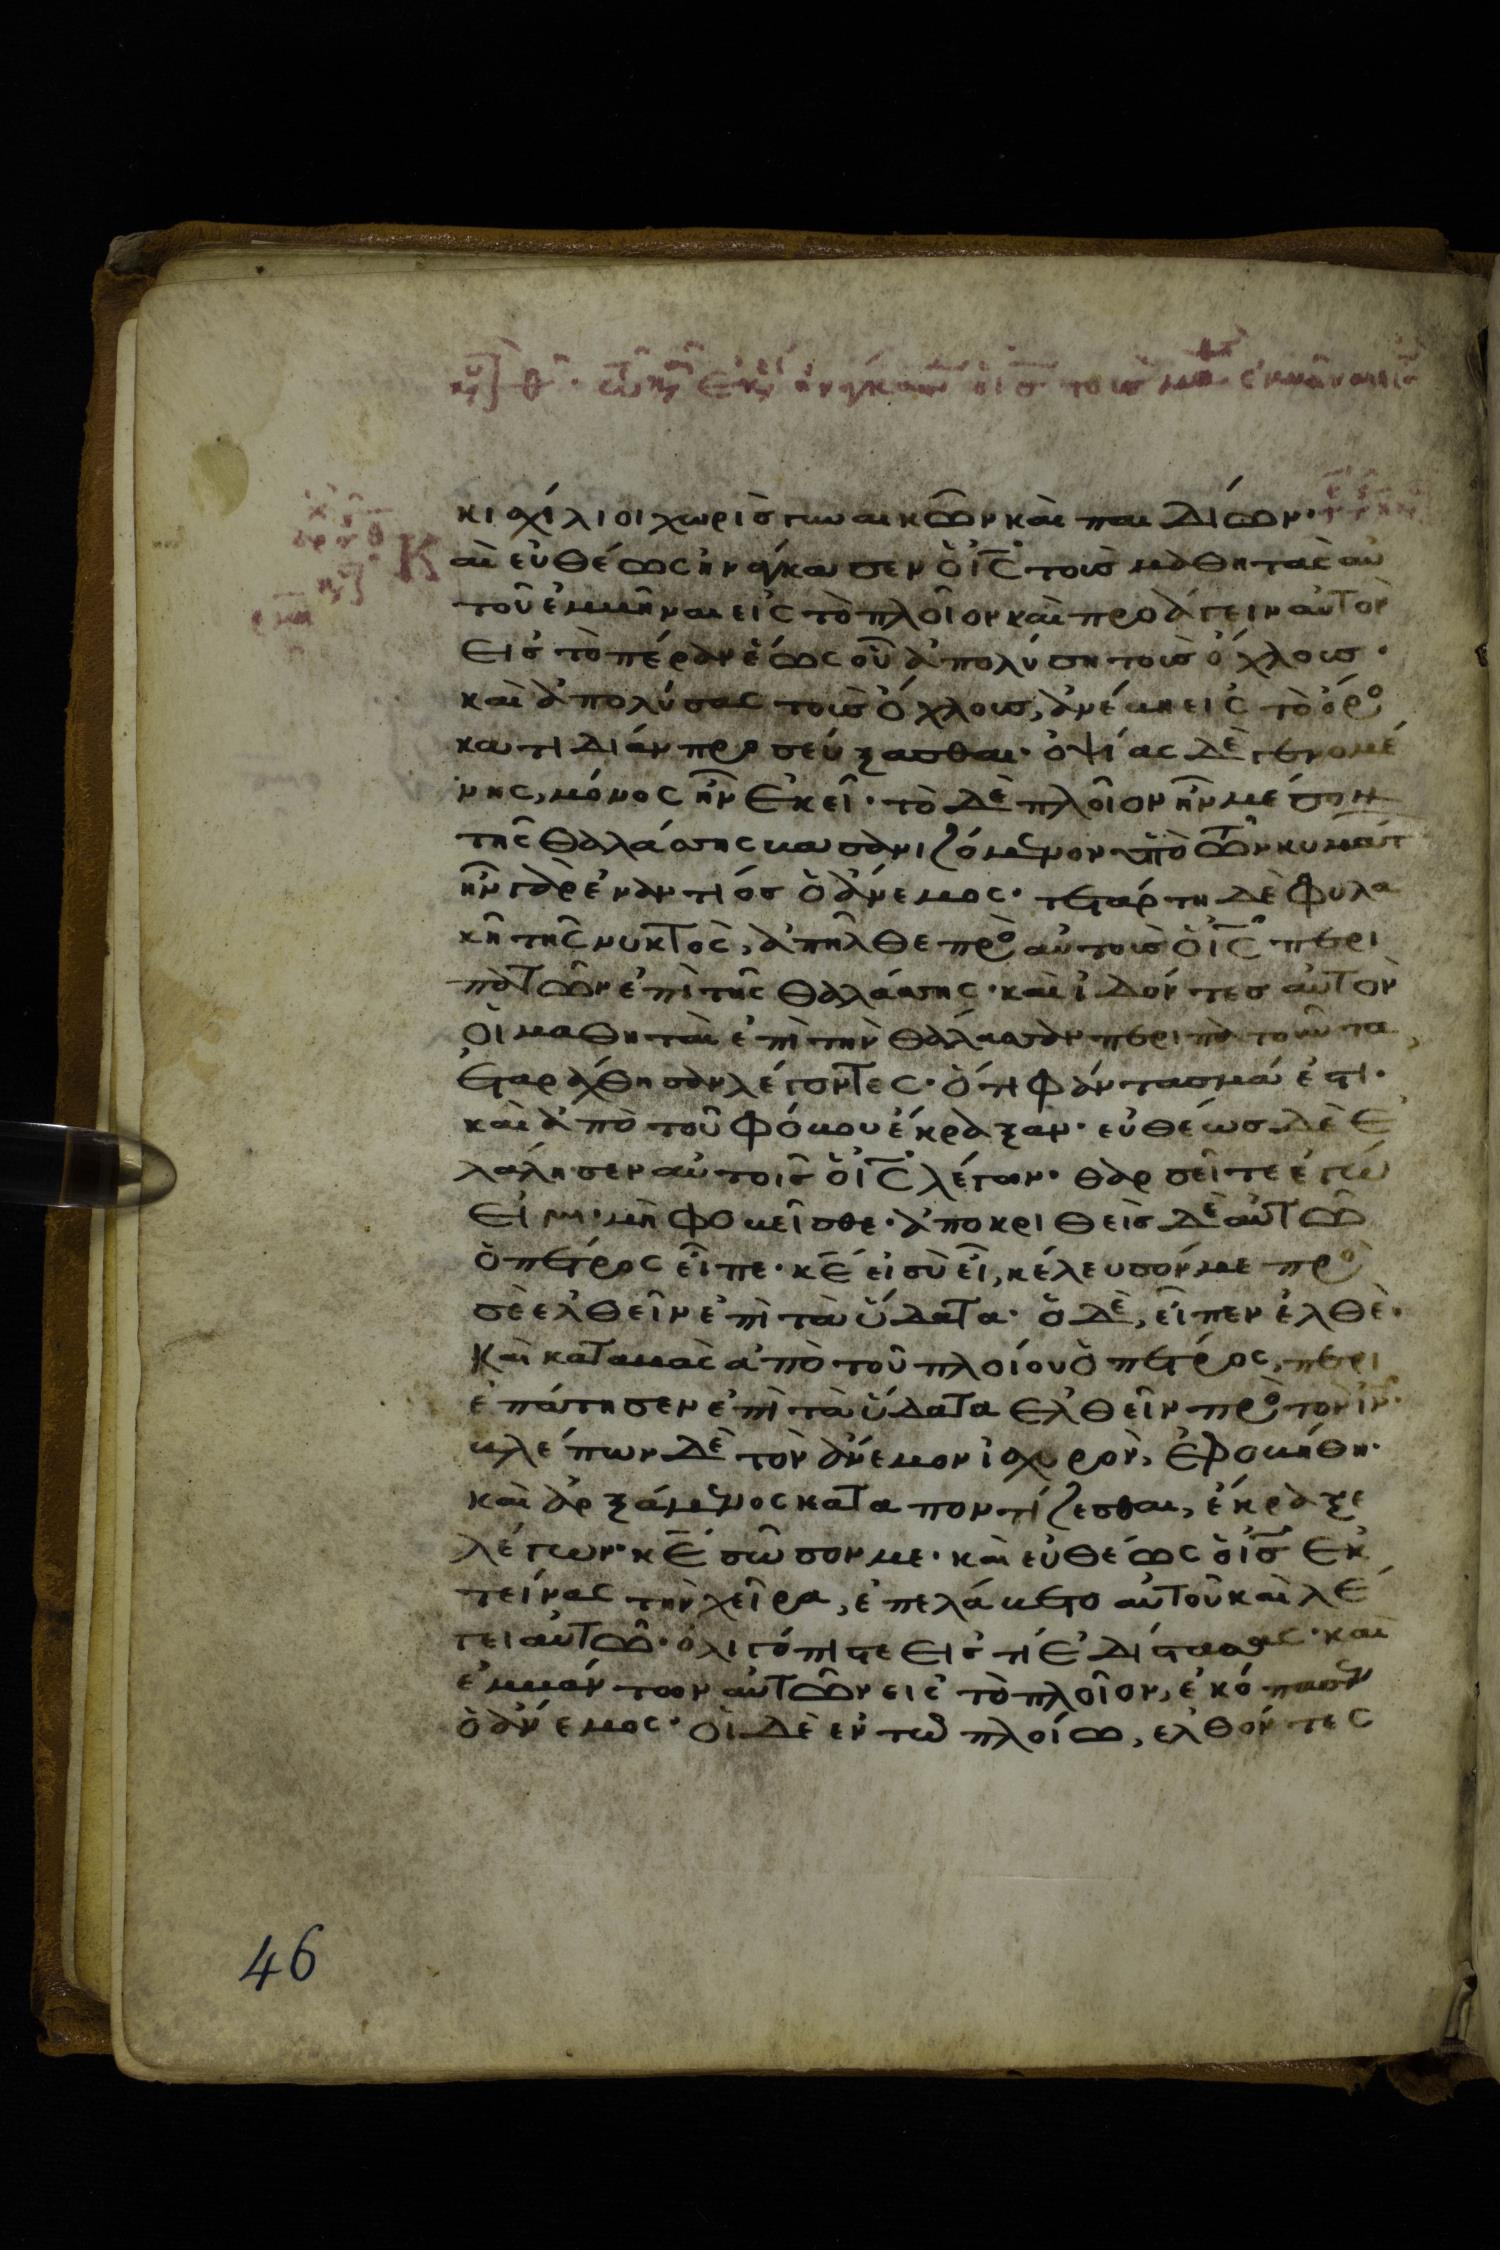 κυ] θ̑. τῶ κῶ ἐκ ἠνάγκασεν ὁ ις τοὺς μαθ ἐμβῆναι
κιχίλιοι χωρὶς γυναικῶν καὶ παιδίων·
Καὶ εὐθέως ἠνάγκασεν ὁ ι̅ς̅ τοὺς μαθητὰς αὐ
τοῦ ἐμβῆναι εἰς τὸ πλοῖον καὶ προάγειν αὐτὸν
εἰς τὸ πέραν ἕως οὗ ἀπολύση τοὺς ὄχλους·
καὶ ἀπολύσας τοὺς ὄχλους, ἀνέβη εἰς τὸ ὄρο
κατιδίαν προσεύξασθαι· ὀψίας δὲ γενομέ
νης, μόνος ἦν ἐκεῖ· τὸ δὲ πλοῖον ἦν μέσον
τῆς θαλάσσης βασανιζόμενον ὑπὸ τῶν κυμάτ
ἦν γὰρ ἐναντίος ὁ ἄνεμος· τετάρτη δὲ φυλα
κῆ τῆς νυκτὸς, ἀπῆλθε πρὸ αὐτοὺς ὁ ι̅ς̅ περι
πατῶν ἐπὶ τῆς θαλάσσης· καὶ ἰδόντες αὐτὸν
οἱ μαθηταὶ ἐπὶ τὴν θάλασσαν περιπατοῦντα,
ἐταράχθησαν λέγοντες· ὅτι φάντασμά ἐστι·
καὶ ἀπὸ τοῦ φόβου ἔκραξαν· εὐθέως δὲ ἐ
λάλησεν αὐτοῖς ὁ ι̅ς̅ λέγων· θαρσεῖτε ἐγώ
εἰμι· μὴ φοβεῖσθε· ἀποκριθεὶς δὲ αὐτῶ
ὁ πέτρος εἶπε· κ̅ε̅ εἰ σὺ εἶ, κέλευσόν με πρὸ
σὲ ἐλθεῖν ἐπὶ τὰ ὕδατα· ὁ δὲ, εἶπεν ἐλθὲ·
Καὶ καταβὰς ἀπὸ τοῦ πλοίου ὁ πέτρος, περι
επάτησεν ἐπὶ τὰ ὕδατα ἐλθεῖν πρὸ τὸν ι̅ν̅·
βλέπων δὲ τὸν ἄνεμον ἰσχυρὸν, ἐφοβήθη·
καὶ ἀρξάμενος καταποντίζεσθαι, ἔκραξε
λέγων· κ̅ε̅ σῶσον με· καὶ εὐθέως ὁ ι̅ς̅ ἐκ
τείνας τὴν χεῖρα, ἐπελάβετο αὐτοῦ καὶ λέ
γει αὐτῶ· ὀλιγόπιστε εἰς τί ἐδίστασας· καὶ
ἐμβάντων αὐτῶν εἰς τὸ πλοῖον, ἐκόπασεν
ὁ ἄνεμος· οἱ δὲ ἐν τῶ πλοίω, ἐλθόντες
46